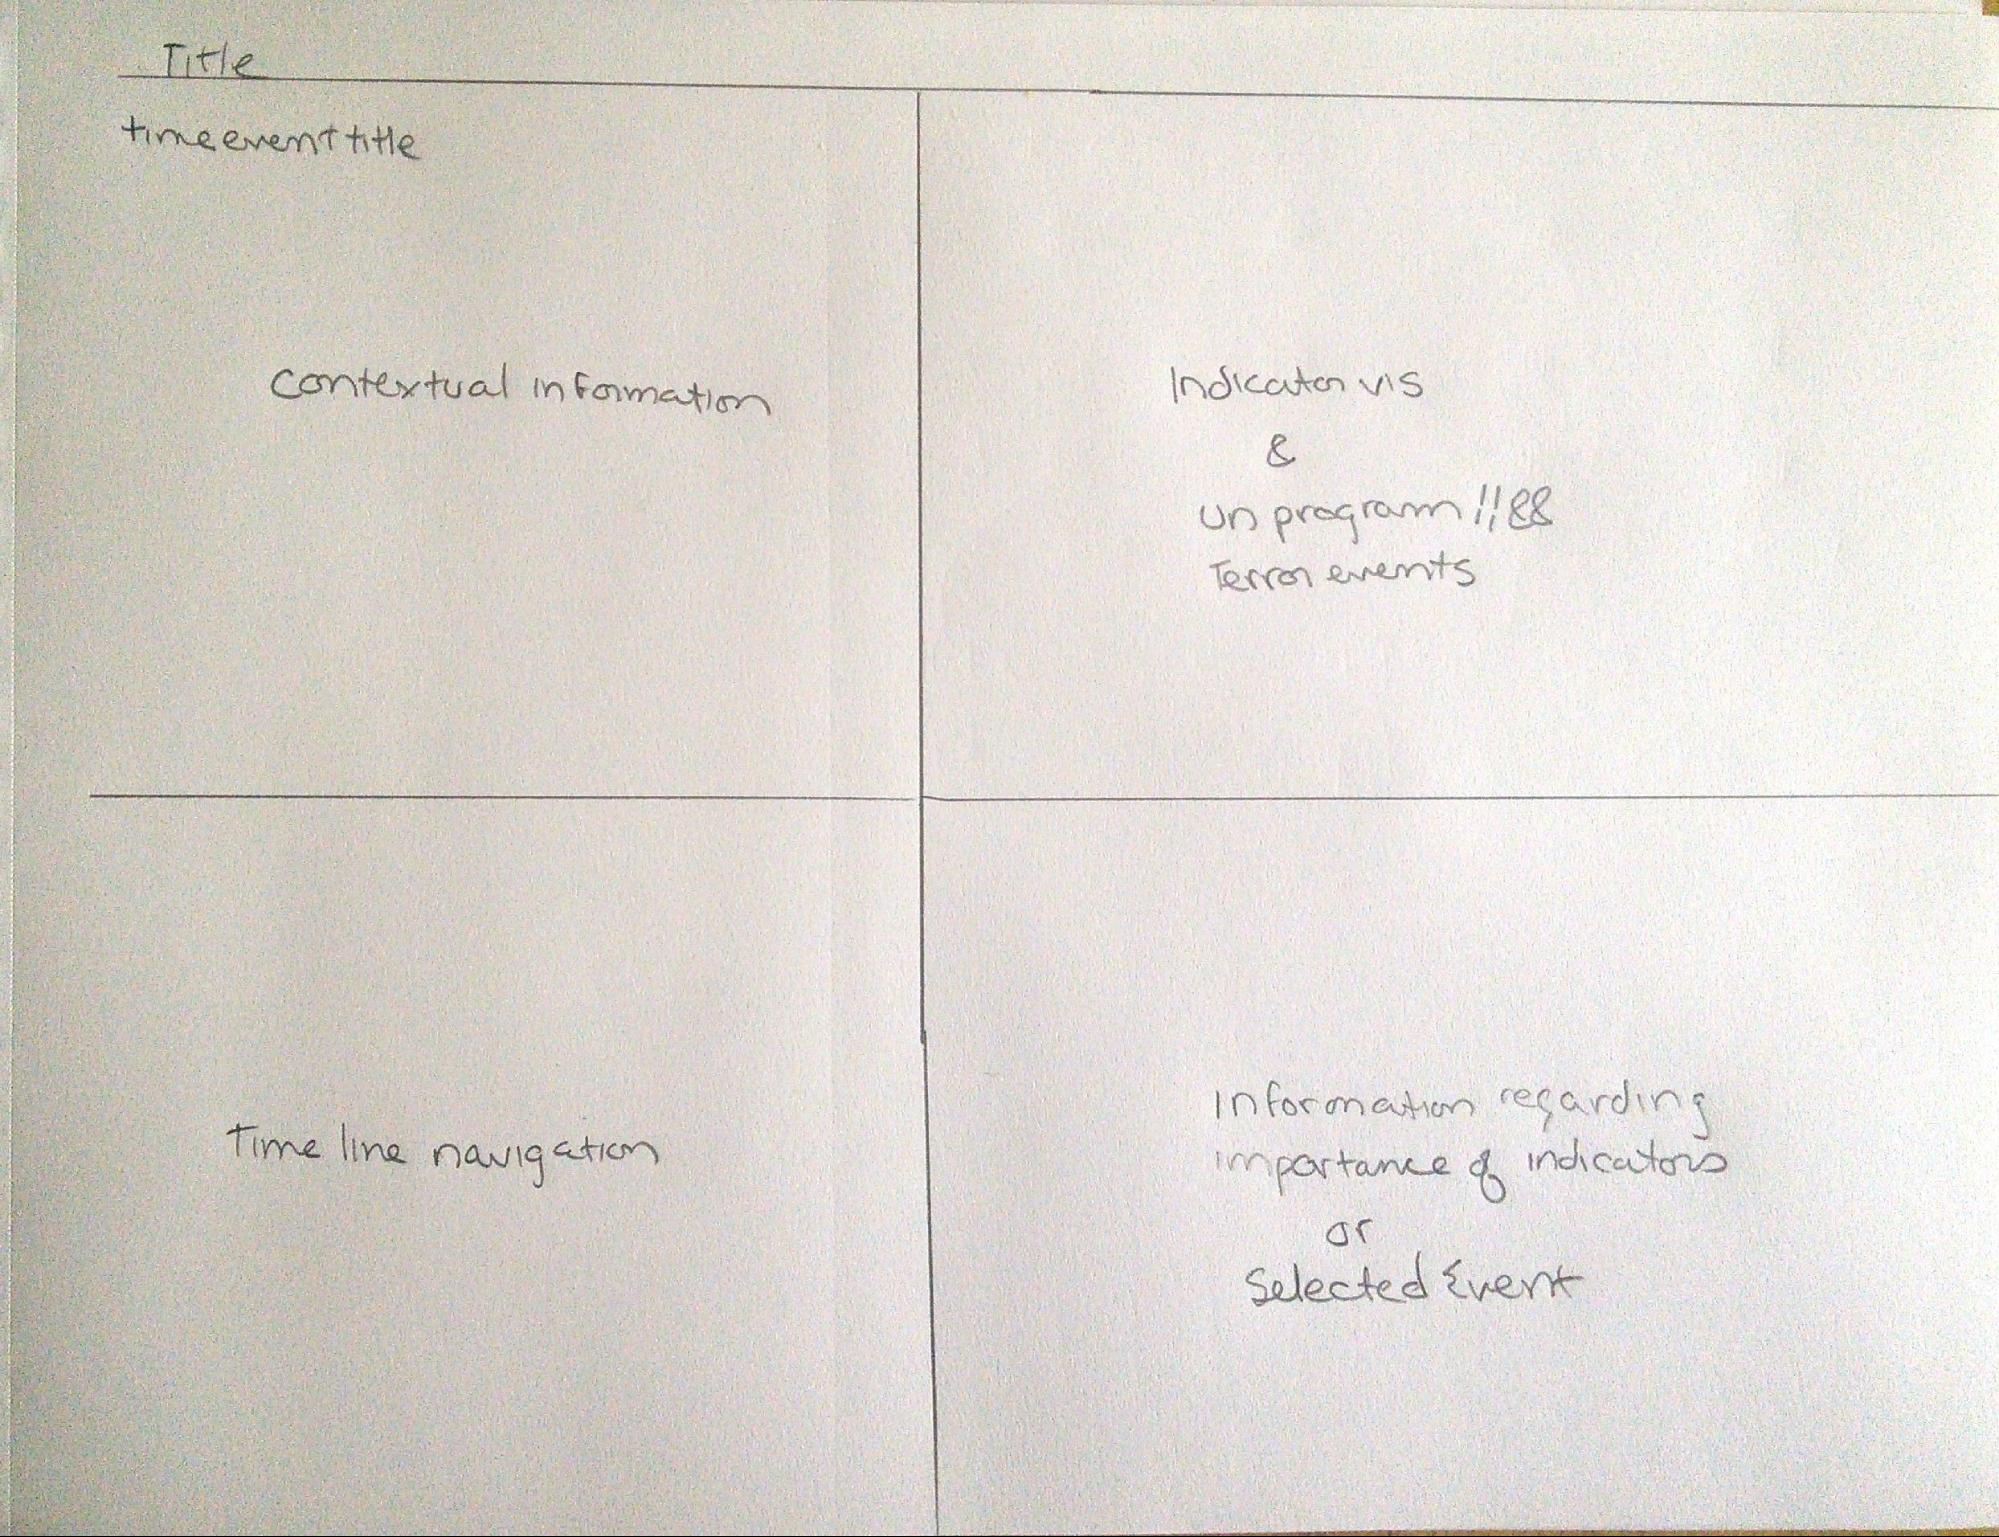 Title
time event title
contextual information
Indicator vis
&
Un program !!&&
Terror events
Time line navigation
Information regarding
importance of indicators
or
Selected Event